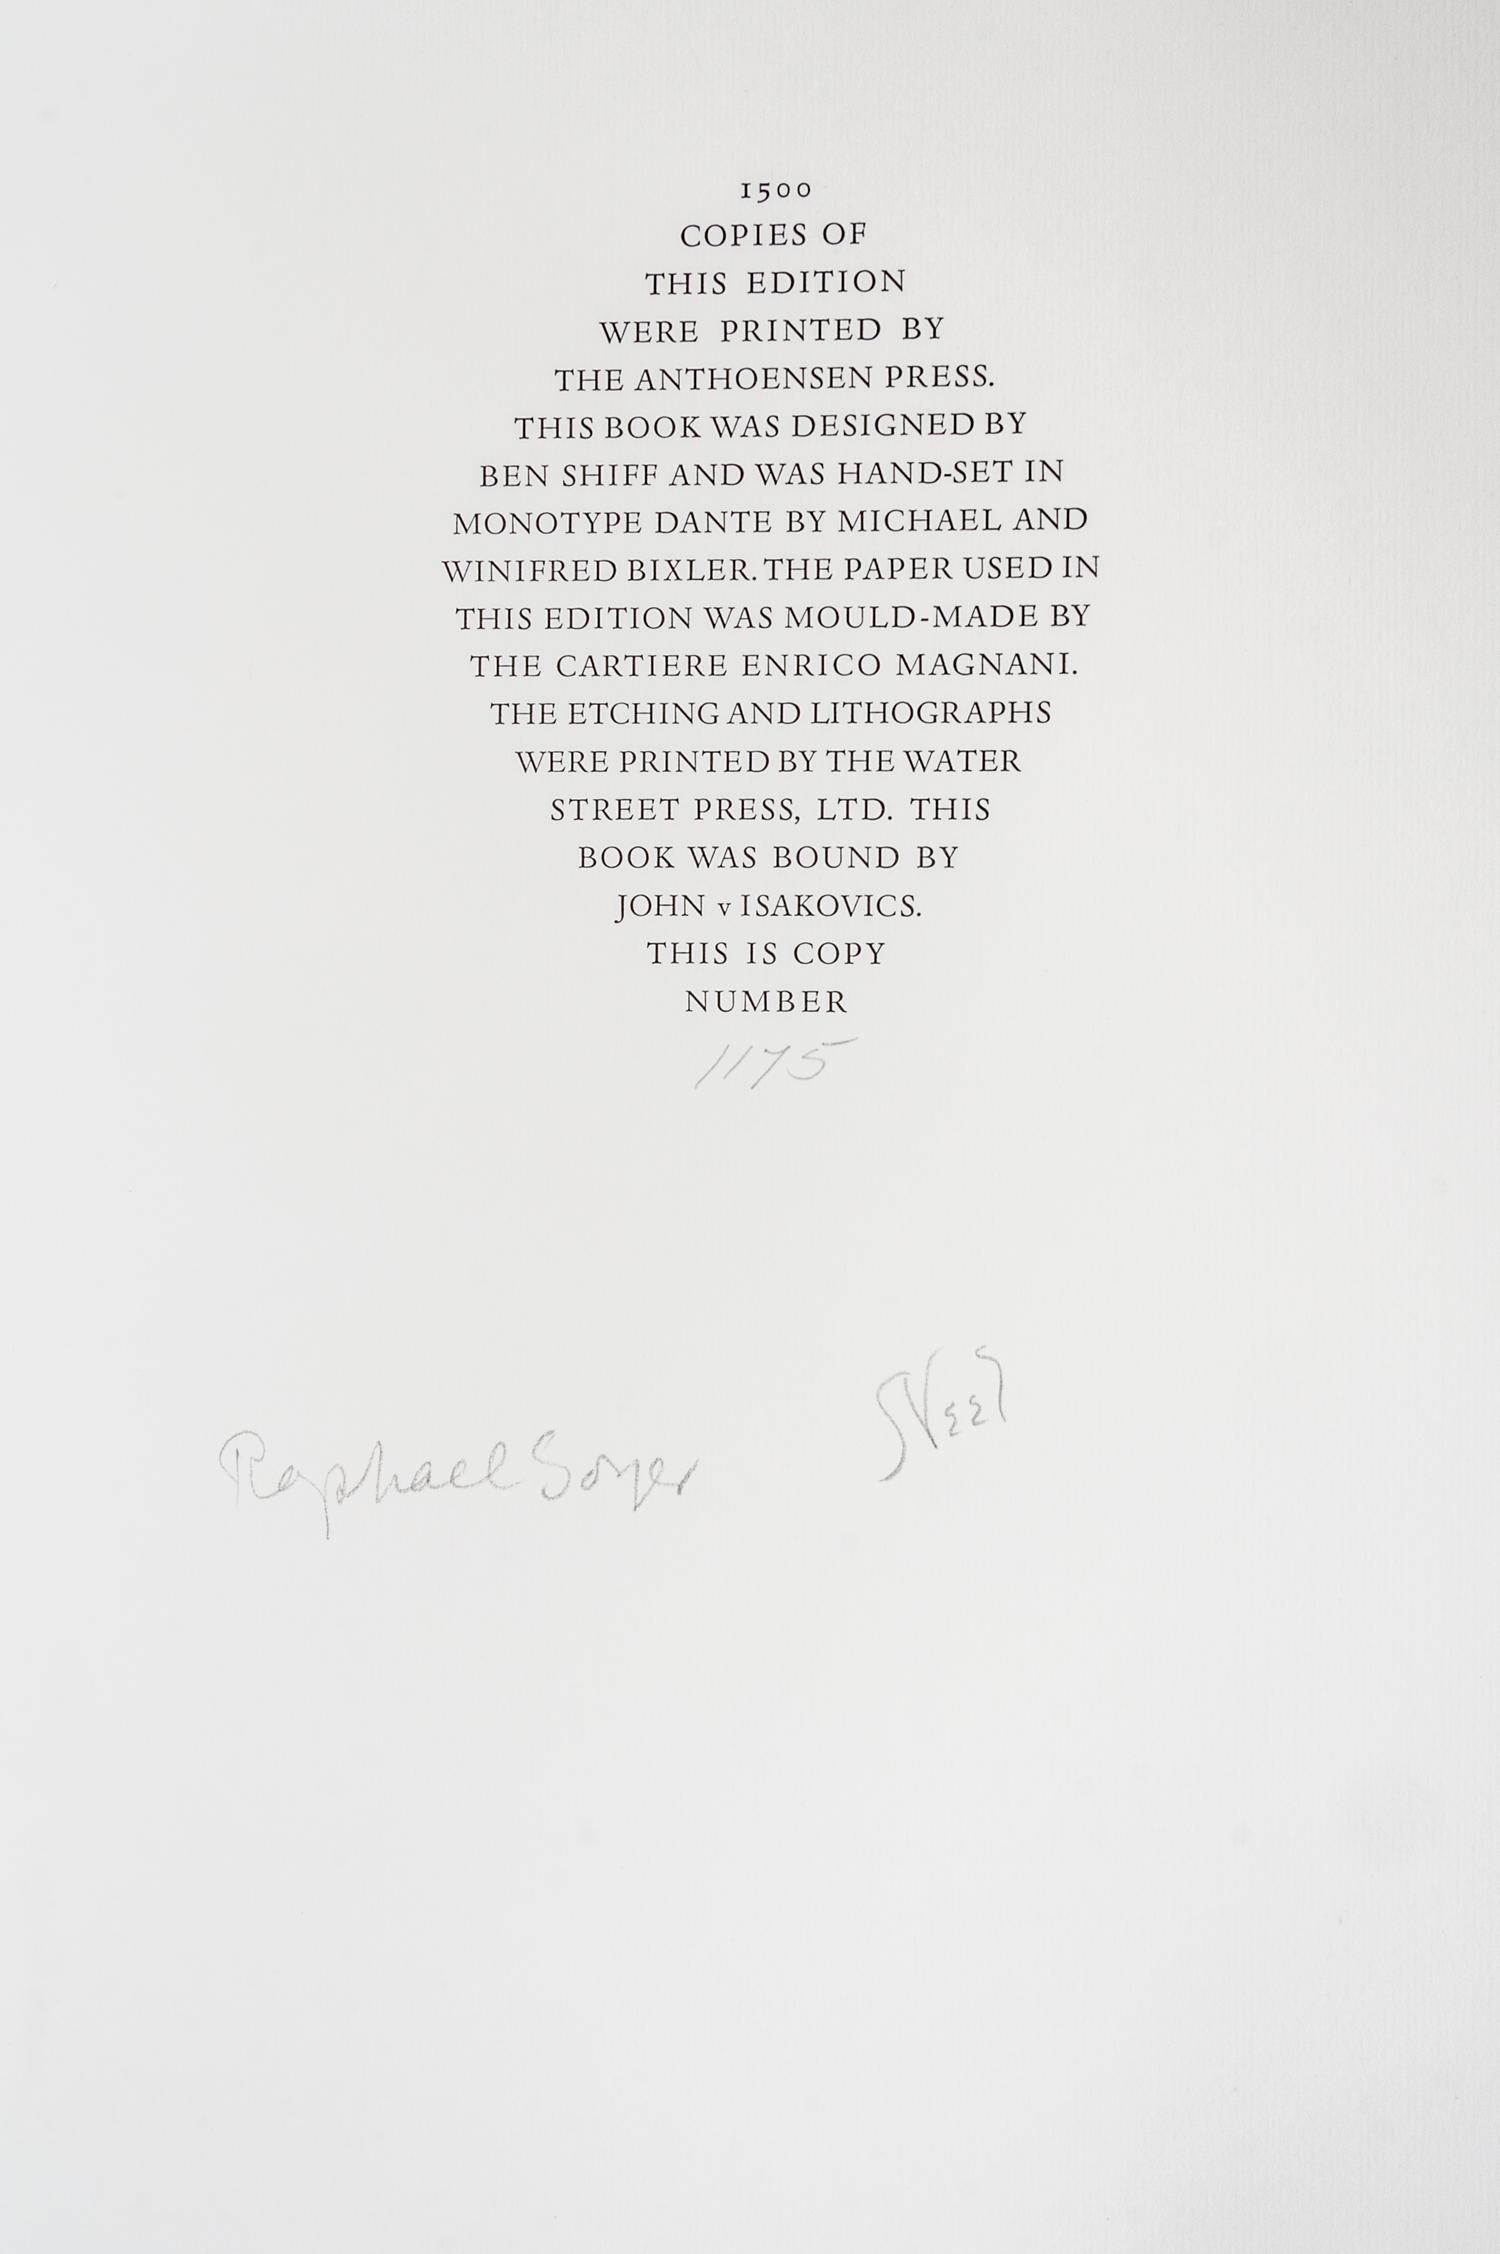 1500
COPIES OF
THIS EDITION
WERE PRINTED BY
THE ANTHOENSEN PRESS.
THIS BOOK WAS DESIGNED BY
BEN SHIFF AND WAS HAND-SET IN
MONOTYPE DANTE BY MICHAEL AND
WINIFRED BIXLER. THE PAPER USED IN
THIS EDITION WAS MOULD-MADE BY
THE CARTIERE ENRICO MAGNANI.
THE ETCHING AND LITHOGRAPHS
WERE PRINTED BY THE WATER
STREET PRESS, LTD. THIS
BOOK WAS BOUND BY
JOHN v ISAKOVICS.
THIS IS COPY
NUMBER
1175
Raphael Soyer